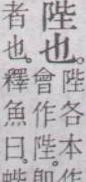 陛也。
陛各本作
會作陛。即
者也。釋魚曰。